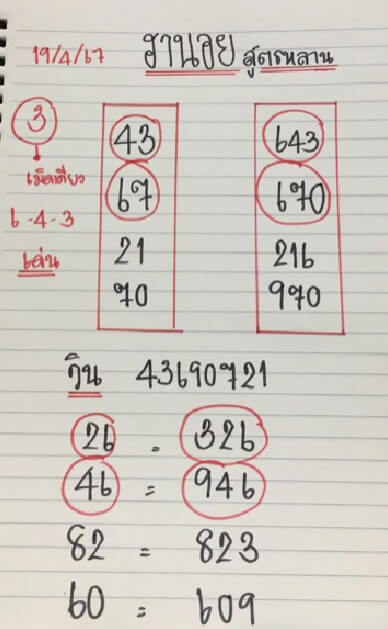 19/4/67 ฮานอย สูตรหลาน
3 43 643
เม็ดเดียว 67 670
6-4-3 21 216
เด่น 70 970
วิน 43690721
26 - 326
46 = 946
82 = 823
60 = 609